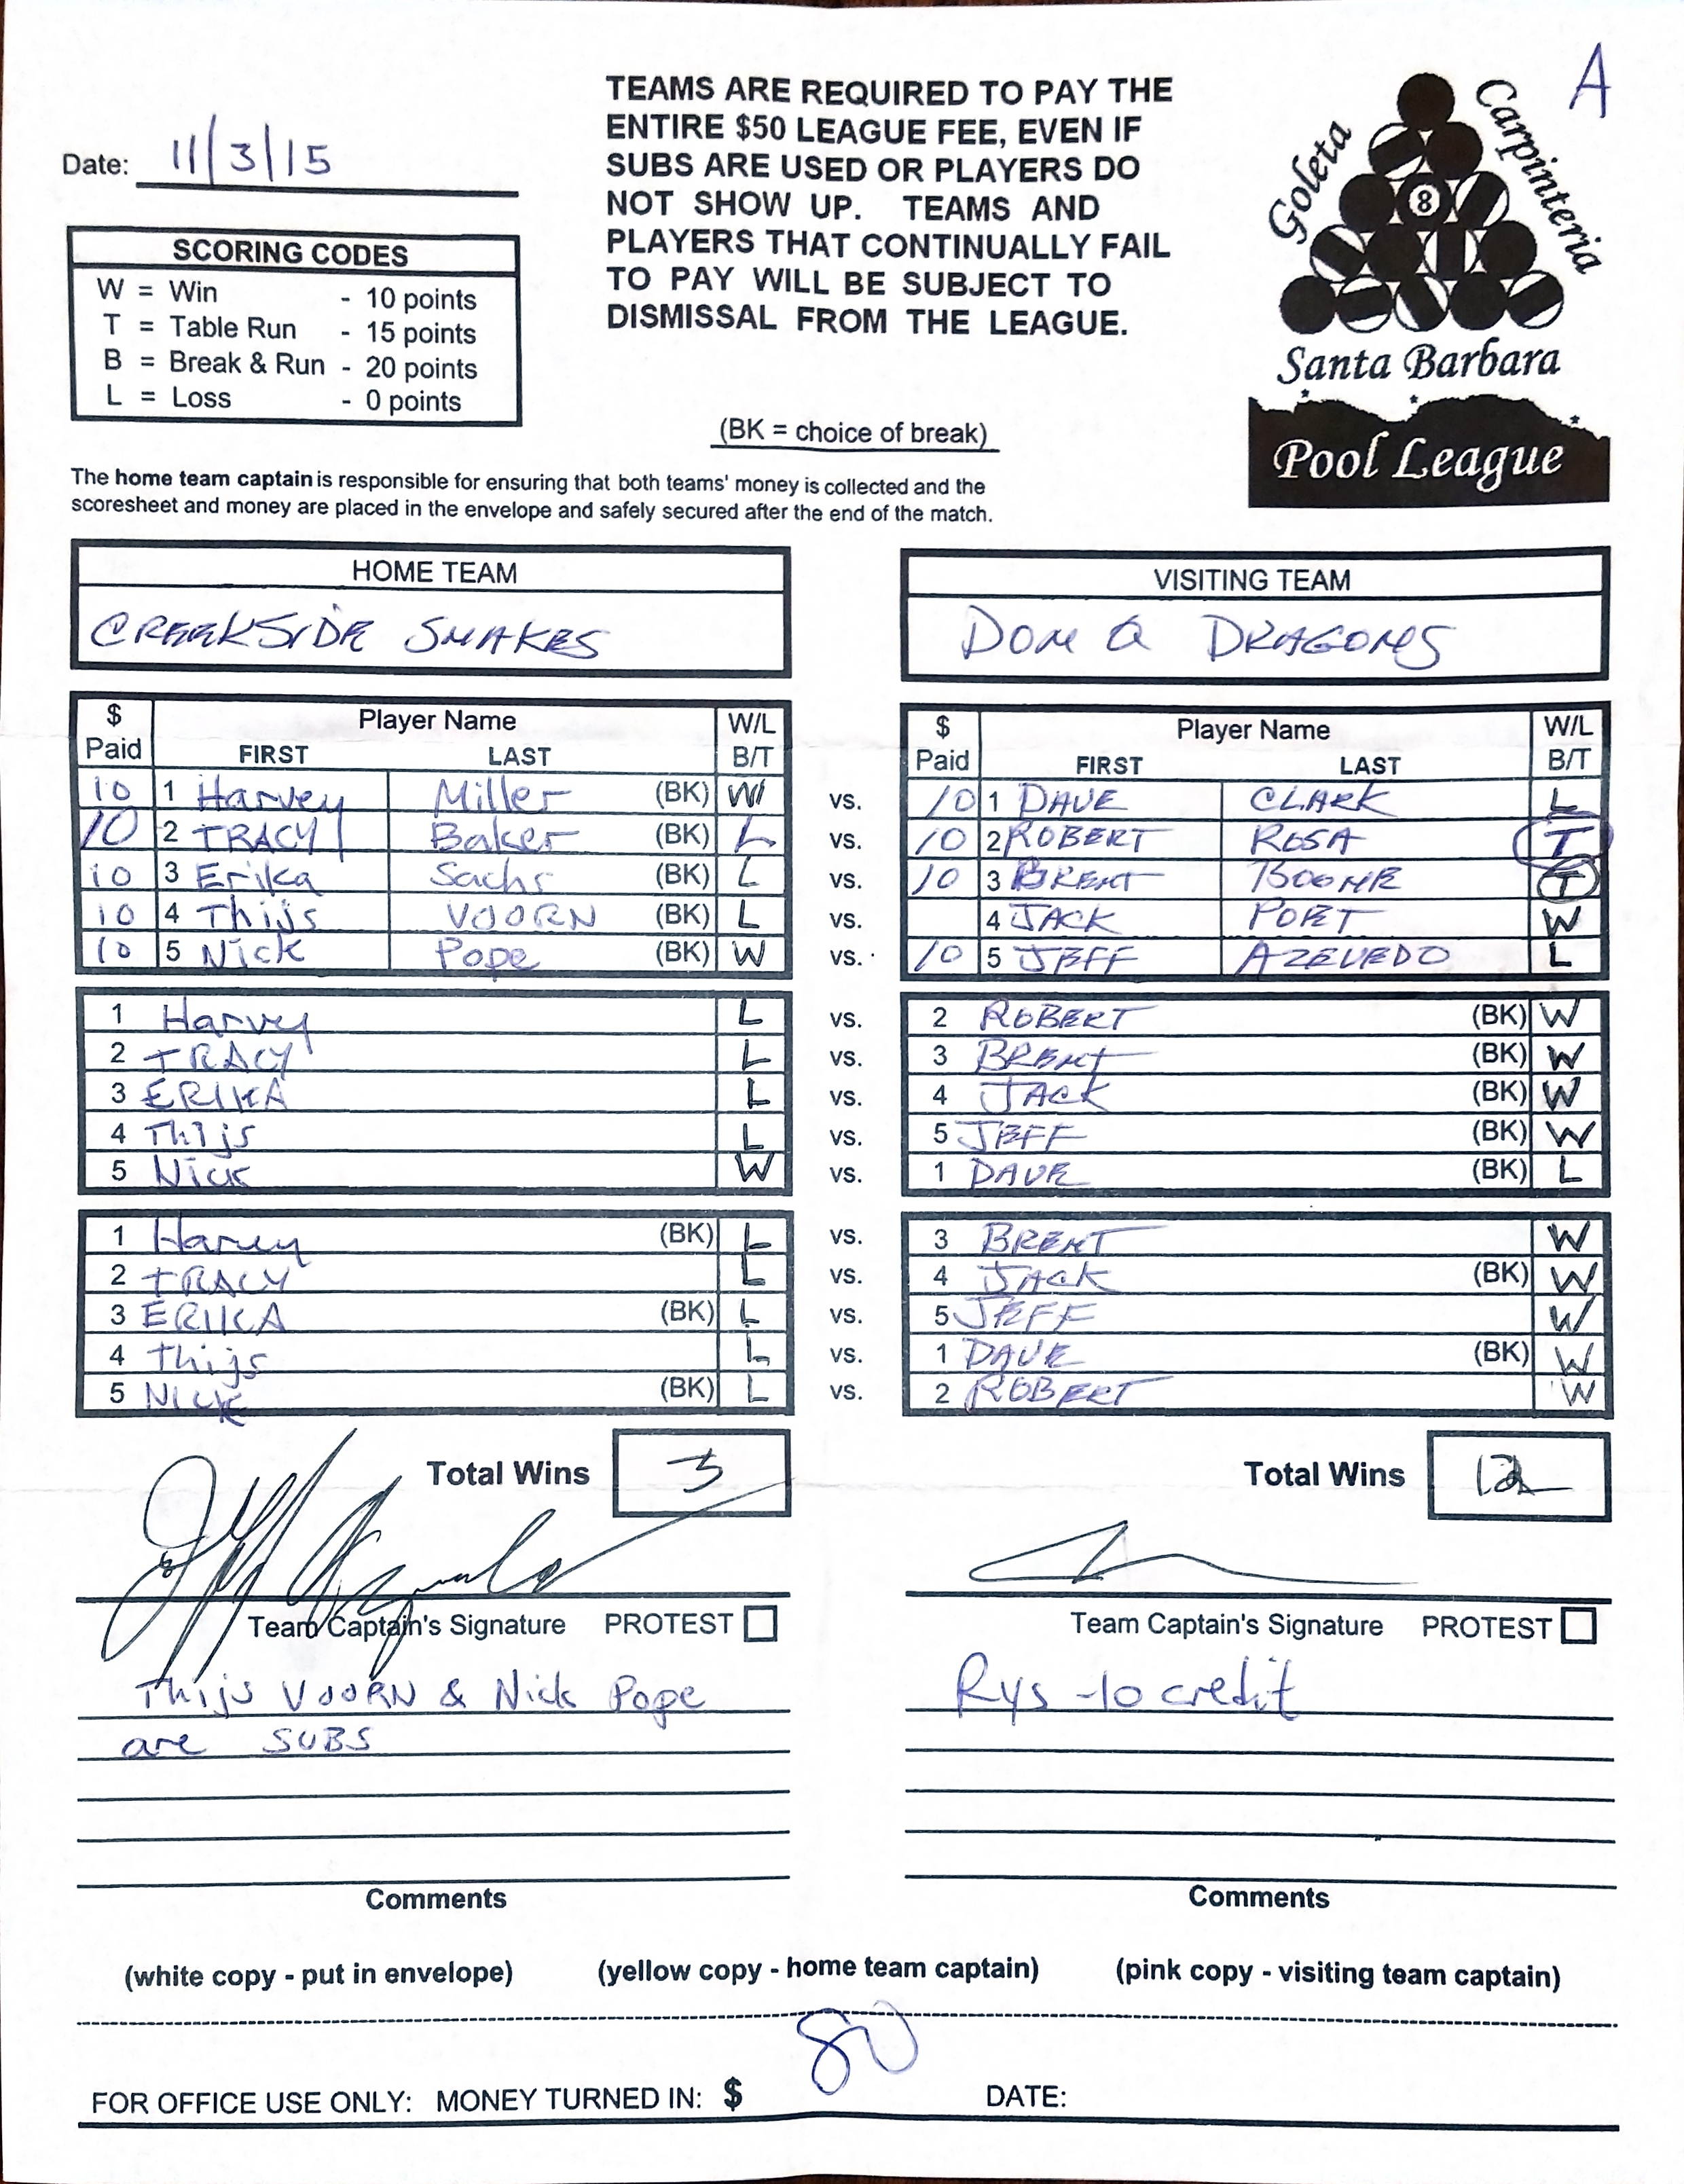 A
Date: 11/3/15
TEAMS ARE REQUIRED TO PAY THE
ENTIRE $50 LEAGUE FEE, EVEN IF
SUBS ARE USED OR PLAYERS DO
NOT SHOW UP. TEAMS AND
PLAYERS THAT CONTINUALLY FAIL
TO PAY WILL BE SUBJECT TO
DISMISSAL FROM THE LEAGUE.
(BK = choice of break)
Goleta
Carpinteria
8
Santa Barbara
Pool League
SCORING CODES
W = Win - 10 points
T = Table Run - 15 points
B = Break & Run - 20 points
L = Loss - 0 points
The home team captain is responsible for ensuring that both teams' money is collected and the
scoresheet and money are placed in the envelope and safely secured after the end of the match.
HOME TEAM
CREEKSIDE SNAKES
VISITING TEAM
DON Q DRAGONS
$ Paid Player Name FIRST LAST W/L B/T
$ Paid Player Name FIRST LAST W/L B/T
10 1 Harvey Miller (BK) W vs. 10 1 DAVE CLARK L
10 2 TRACY Baker (BK) L vs. 10 2 ROBERT ROSA T
10 3 Erika Sachs (BK) L vs. 10 3 BRENT BOONE T
10 4 Thijs VOORN (BK) L vs. 4 JACK PORT W
10 5 Nick Pope (BK) W vs. 10 5 JEFF AZEVEDO L
1 Harvey L vs. 2 ROBERT (BK) W
2 TRACY L vs. 3 BRENT (BK) W
3 ERIKA L vs. 4 JACK (BK) W
4 Thijs L vs. 5 JEFF (BK) W
5 Nick W vs. 1 DAVE (BK) L
1 Harvey (BK) L vs. 3 BRENT W
2 TRACY L vs. 4 JACK (BK) W
3 ERIKA (BK) L vs. 5 JEFF W
4 Thijs L vs. 1 DAVE (BK) W
5 NICK (BK) L vs. 2 ROBERT W
Total Wins 3
Total Wins 12
Team Captain's Signature PROTEST
Team Captain's Signature PROTEST
Thijs VOORN & Nick Pope
are SUBS
Rys -10 credit
Comments
Comments
(white copy - put in envelope) (yellow copy - home team captain) (pink copy - visiting team captain)
FOR OFFICE USE ONLY: MONEY TURNED IN: $ 80 DATE: